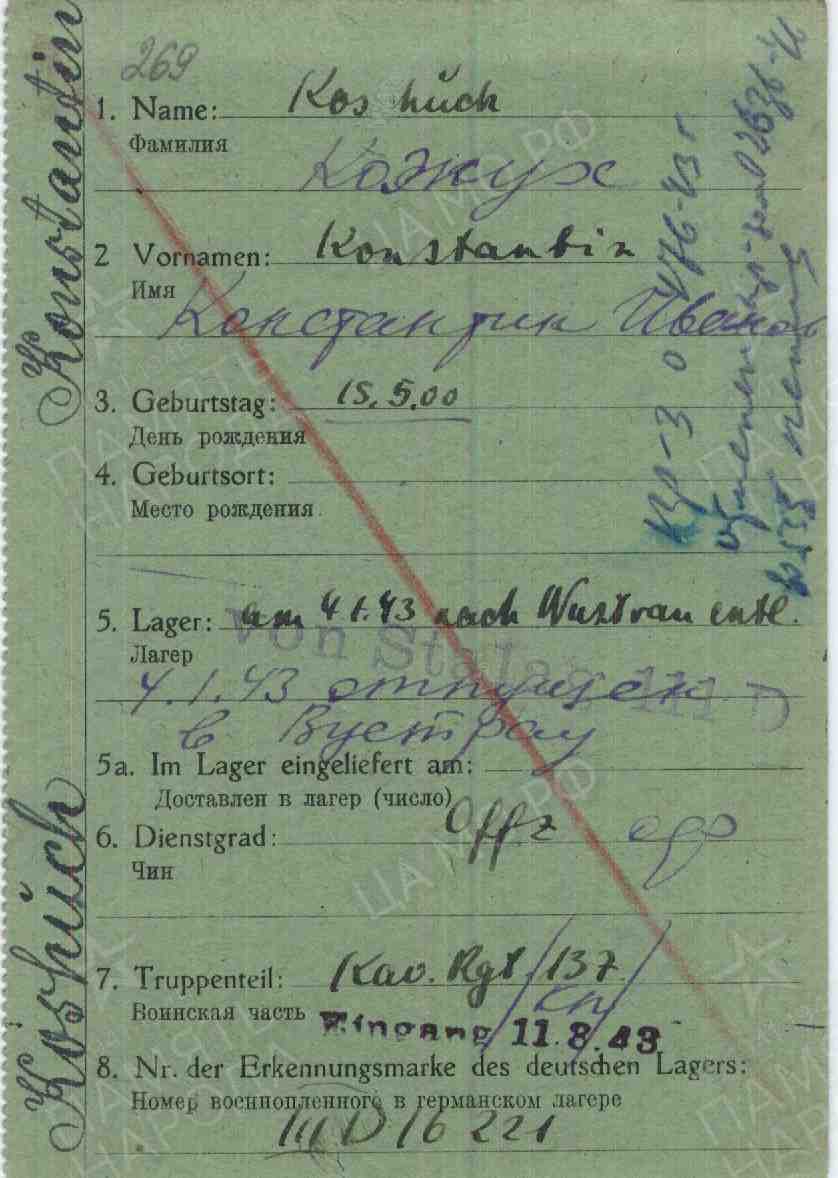 269
1. Name: Koshuch
Фамилия
Кожух
2 Vornamen: Konstantin
Имя
Константин Иванов
3. Geburtstag: 15.5.00
День рождения
4. Geburtsort:
Место рождения
5. Lager: am 4.1.43 nach Wustrau entl.
Лагер
von Stalag III D
4.1.43 отпущен
в Вустрау
5a. Im Lager eingeliefert am:
Доставлен в лагер (число)
6. Dienstgrad: Offz оф
Чин
7. Truppenteil: Kav. Rgt. 137
Воинская часть
кп
Eingang 11.8.43
8. Nr. der Erkennungsmarke des deutschen Lagers:
Номер военнопленного в германском лагере
III D 16221
Koshuch Konstantin
ЦА МО РФ
ПАМЯТЬ
НАРОДА